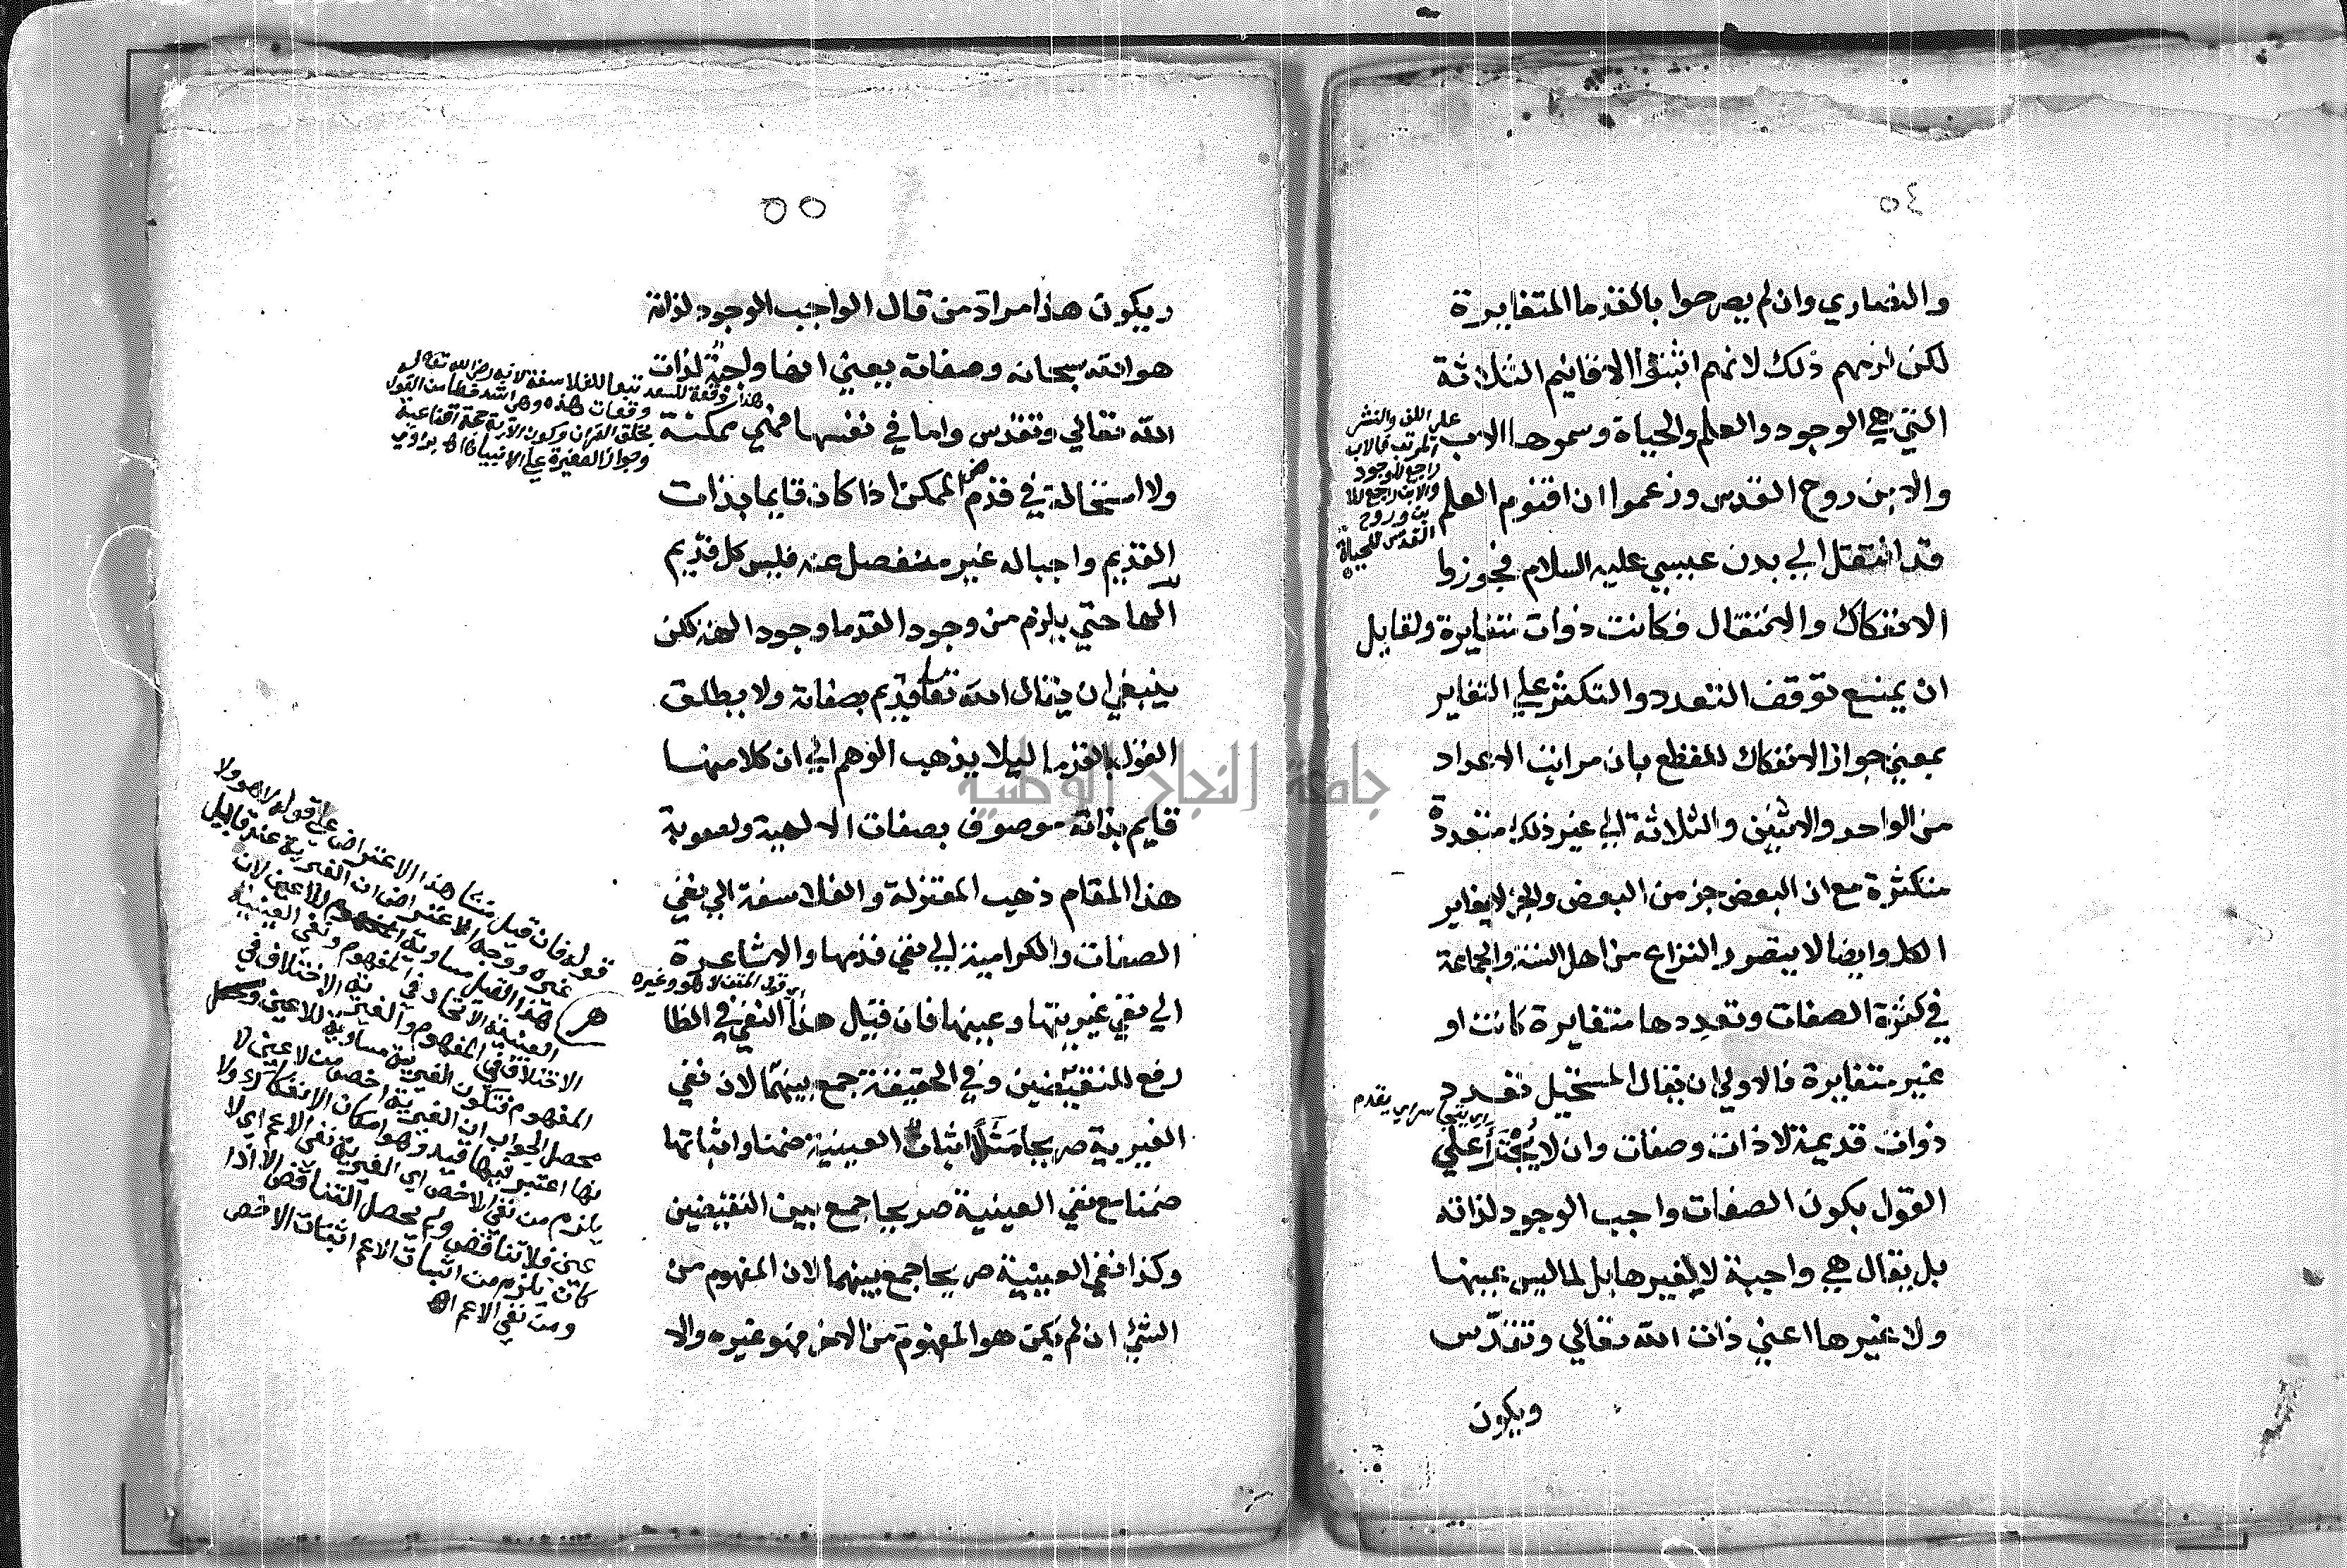 ٥٤
والنصاري وان لم يصرحوا بالقدما المتغايرة
لكن لزمهم ذلك لانهم اثبتوا الاقانيم الثلاثة
التي هي الوجود والعلم والحياة وسموها الاب
والابن روح القدس وزعموا ان اقنوم العلم
قد انتقل الي بدن عيسي عليه السلام فجوزوا
الانفكاك والانتقال فكانت ذوات متغايرة ولقايل
ان يمنع توقف التعدد والتكثر علي التغاير
بمعني جواز الانفكاك للقطع بان مراتب الاعداد
من الواحد والاثنين والثلاثة الي غير ذلك متعددة
متكثرة مع ان البعض جز من البعض والجز لا يغاير
الكل وايضا لا يتصور النزاع من اهل السنة والجماعة
في كثرة الصفات وتعددها متغايرة كانت او
غير متغايرة فالاولي ان يقال المستحيل تعدد
ذوات قديمة لا ذات وصفات وان لا يجترأ علي
القول بكون الصفات واجب الوجود لذاته
بل يقال هي واجبة لا لغيرها بل لما ليس عينها
ولا غيرها اعني ذات الله تعالي وتقدس
ويكون
علي اللف والنشر
المرتب فالاب
راجع للوجود
والابن راجع للا
بن وروح
القدس للحياة
اي يتجاسر اي يقدم
٥٥
ويكون هذا مراد من قال الواجب الوجود لذاته
هو الله سبحانه وصفاته يعني انها واجبة لذات
الله تعالي وتقدس واما في نفسها فهي ممكنة
ولا استحالة في قدم الممكن اذا كان قايما بذات
القديم واجبا له غير منفصل عنه فليس كل قديم
الها حتي يلزم من وجود القدما وجود الهة لكن
ينبغي ان يقال الله تعا قديم بصفاته ولا يطلق
القول بالقدما ليلا يذهب الوهم الي ان كلا منها
قايم بذاته موصوف بصفات الالهية ولصعوبة
هذا المقام ذهب المعتزلة والفلاسفة الي نفي
الصفات والكرامية الي نفي قدمها والاشاعرة
الي نفي غيريتها وعينها فان قيل هذا النفي في الظا
رفع للنقيضين وفي الحقيقة جمع بينهما لان نفي
الغيرية صريحا مثلا اثبات العينية ضمنا واثباتها
ضمنا مع نفي العينية صريحا جمع بين النقيضين
وكذا نفي العينية صريحا جمع بينهما لان المفهوم من
الشئ ان لم يكن هو المفهوم من الاخر فهو غيره والا
هذا وقعة للسعد تبعا للفلاسفة لانه رضي الله تعالي
وقعات هذه وهي اشد قطا من القول
بخلق القران وكون الاية حجة اقناعية
وجواز الصغيرة علي الانبيا
اي قول المتن لا هو وغيره
قوله فان قيل منشا هذا الاعتراض علي قوله لا هو ولا
غيره ووجه الاعتراض ان الغيرية عند قايل
هذا القيل مساوية للاعين لان
العينية الاتحاد في المفهوم ونفي العينية
الاختلاف في المفهوم والغيرية الاختلاف في
المفهوم فتكون الغيرية مساوية للاعين
محصل الجواب ان الغيرية اخص من لا عين لا
نها اعتبر فيها قيد وهو امكان الانفكاك ولا
يلزم من نفي الاخص اي الغيرية نفي الاعم اي لا
عين فلا تناقض ولم يحصل التناقض الا اذا
كان يلزم من اثبات الاعم اثبات الاخص
ومن نفي الاعم اه
جامعة النجاح الوطنية